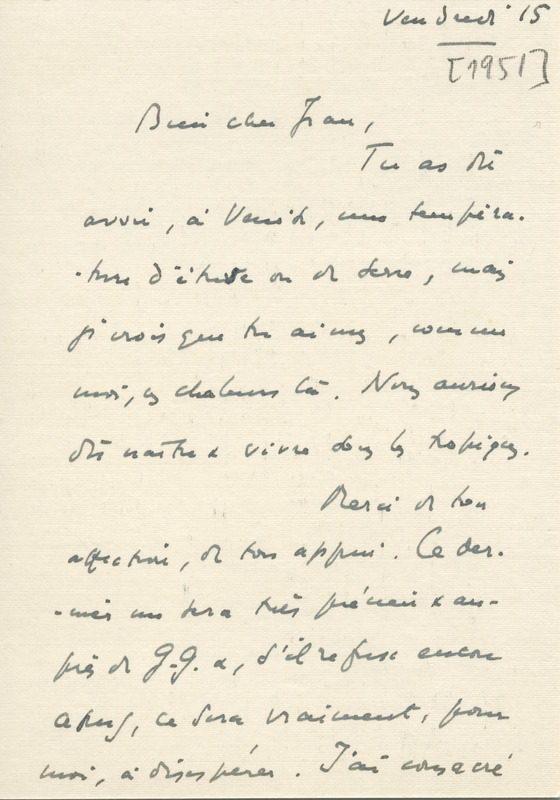 Vendredi 15
[1951]
Bien cher Jean,
Tu as dû
avoir, à Venise, une tempéra-
-ture d'étuve ou de serre, mais
je crois que tu aimes, comme
moi, ces chaleurs là. Nous aurions
dû naître & vivre sous les tropiques.
Merci de ton
affection, de ton appui. Ce der-
-nier me sera très précieux au-
près de G.G. &, s'il refuse encore
ce sera vraiment, pour
moi, à désespérer. J'ai consacré